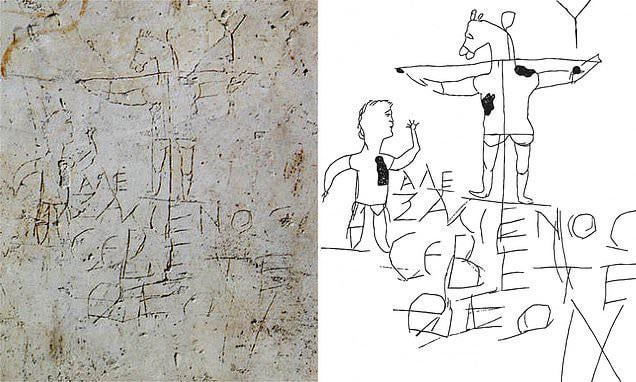 Υ
ΑΛΕ
ΞΑΜΕΝΟϹ
ϹΕΒΕΤΕ
ΘΕΟΝ
Υ
ΑΛΕ
ΞΑΜΕΝΟϹ
ϹΕΒΕΤΕ
ΘΕΟΝ